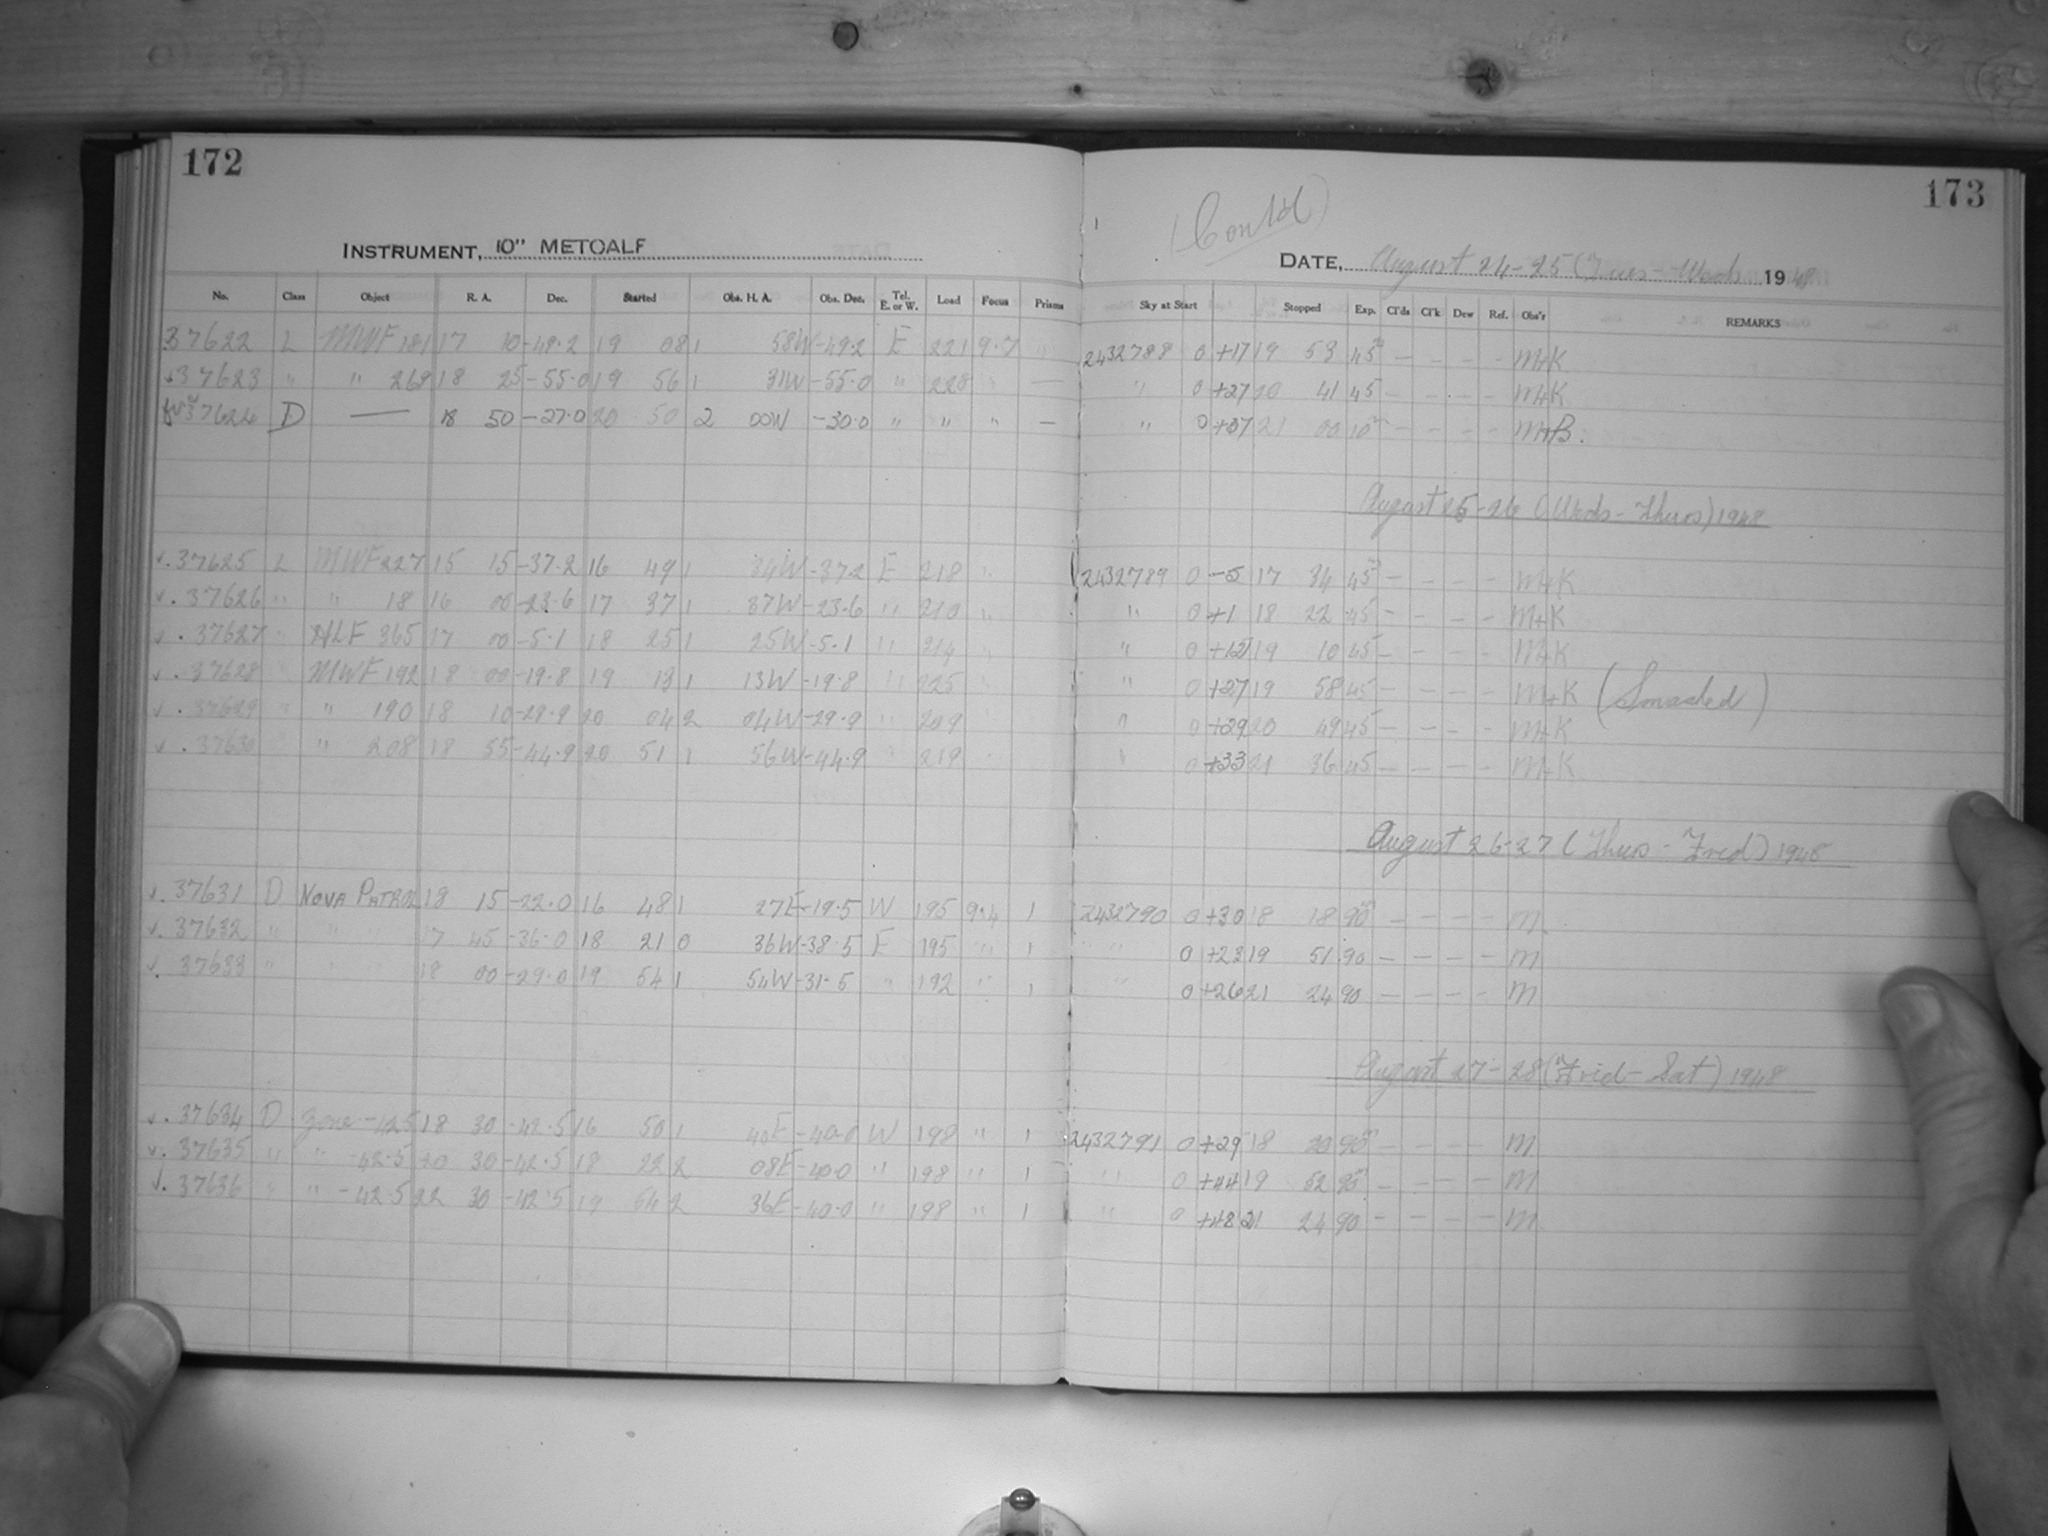 172
173
(Contd)
INSTRUMENT, 10" METCALF
DATE, August 24-25 (Tues-Weds 1948
No. Class Object R. A. Dec. Started Obs. H. A. Obs. Dec. Tel. E. or W. Load Focus Prisms Sky at Start Stopped Exp. Cl'ds Cl'k Dew Ref. Obs'r REMARKS
37622 L MWF 181 17 10 -49.2 19 08 1 58W -49.2 E 221 9.7 " 2432788 0 +17 19 53 45 - - - - M+K
37623 " " 269 18 25 -55.0 19 56 1 31W -55.0 " 228 " — " 0 +27 20 41 45 - - - - M+K
37624 D — 18 50 -27.0 20 50 2 00W -30.0 " " " — " 0 +37 21 00 10 - - - - M+B.
August 25-26 (Weds-Thurs) 1948
37625 L MWF 227 15 15 -37.2 16 49 1 34W -37.2 E 218 " 2432789 0 -5 17 34 45 - - - - M+K
37626 " " 18 16 00 -23.6 17 37 1 37W -23.6 " 210 " " 0 +1 18 22 45 - - - - M+K
37627 " HLF 365 17 00 -5.1 18 25 1 25W -5.1 " 214 " " 0 +12 19 10 45 - - - - M+K
37628 MWF 192 18 00 -19.8 19 13 1 13W -19.8 " 225 " " 0 +27 19 58 45 - - - - M+K (Smashed)
37629 " " 190 18 10 -29.9 20 04 2 04W -29.9 " 209 " 0 +29 20 49 45 - - - - M+K
37630 " 208 18 55 -44.9 20 51 1 56W -44.9 " 219 " 0 +33 21 36 45 - - - - M+K
August 26-27 (Thurs-Frid) 1948
37631 D NOVA PATROL 18 15 -22.0 16 48 1 27E -19.5 W 195 9.4 1 2432790 0 +30 18 18 90 - - - - M
37632 " " " 17 45 -36.0 18 21 0 36W -38.5 E 195 " 1 " 0 +23 19 51 90 - - - - M
37633 " " 18 00 -29.0 19 54 1 54W -31.5 " 192 " 1 " 0 +26 21 24 90 - - - - M
August 27-28 (Frid-Sat) 1948
37634 D Zone -42.5 18 30 -42.5 16 50 1 40E -40.0 W 198 " 1 2432791 0 +29 18 20 90 - - - - M
37635 " " -42.5 20 30 -42.5 18 22 2 08E -40.0 " 198 " 1 " 0 +44 19 52 90 - - - - M
37636 " " -42.5 22 30 -42.5 19 54 2 36E -40.0 " 198 " 1 " 0 +48 21 24 90 - - - - M